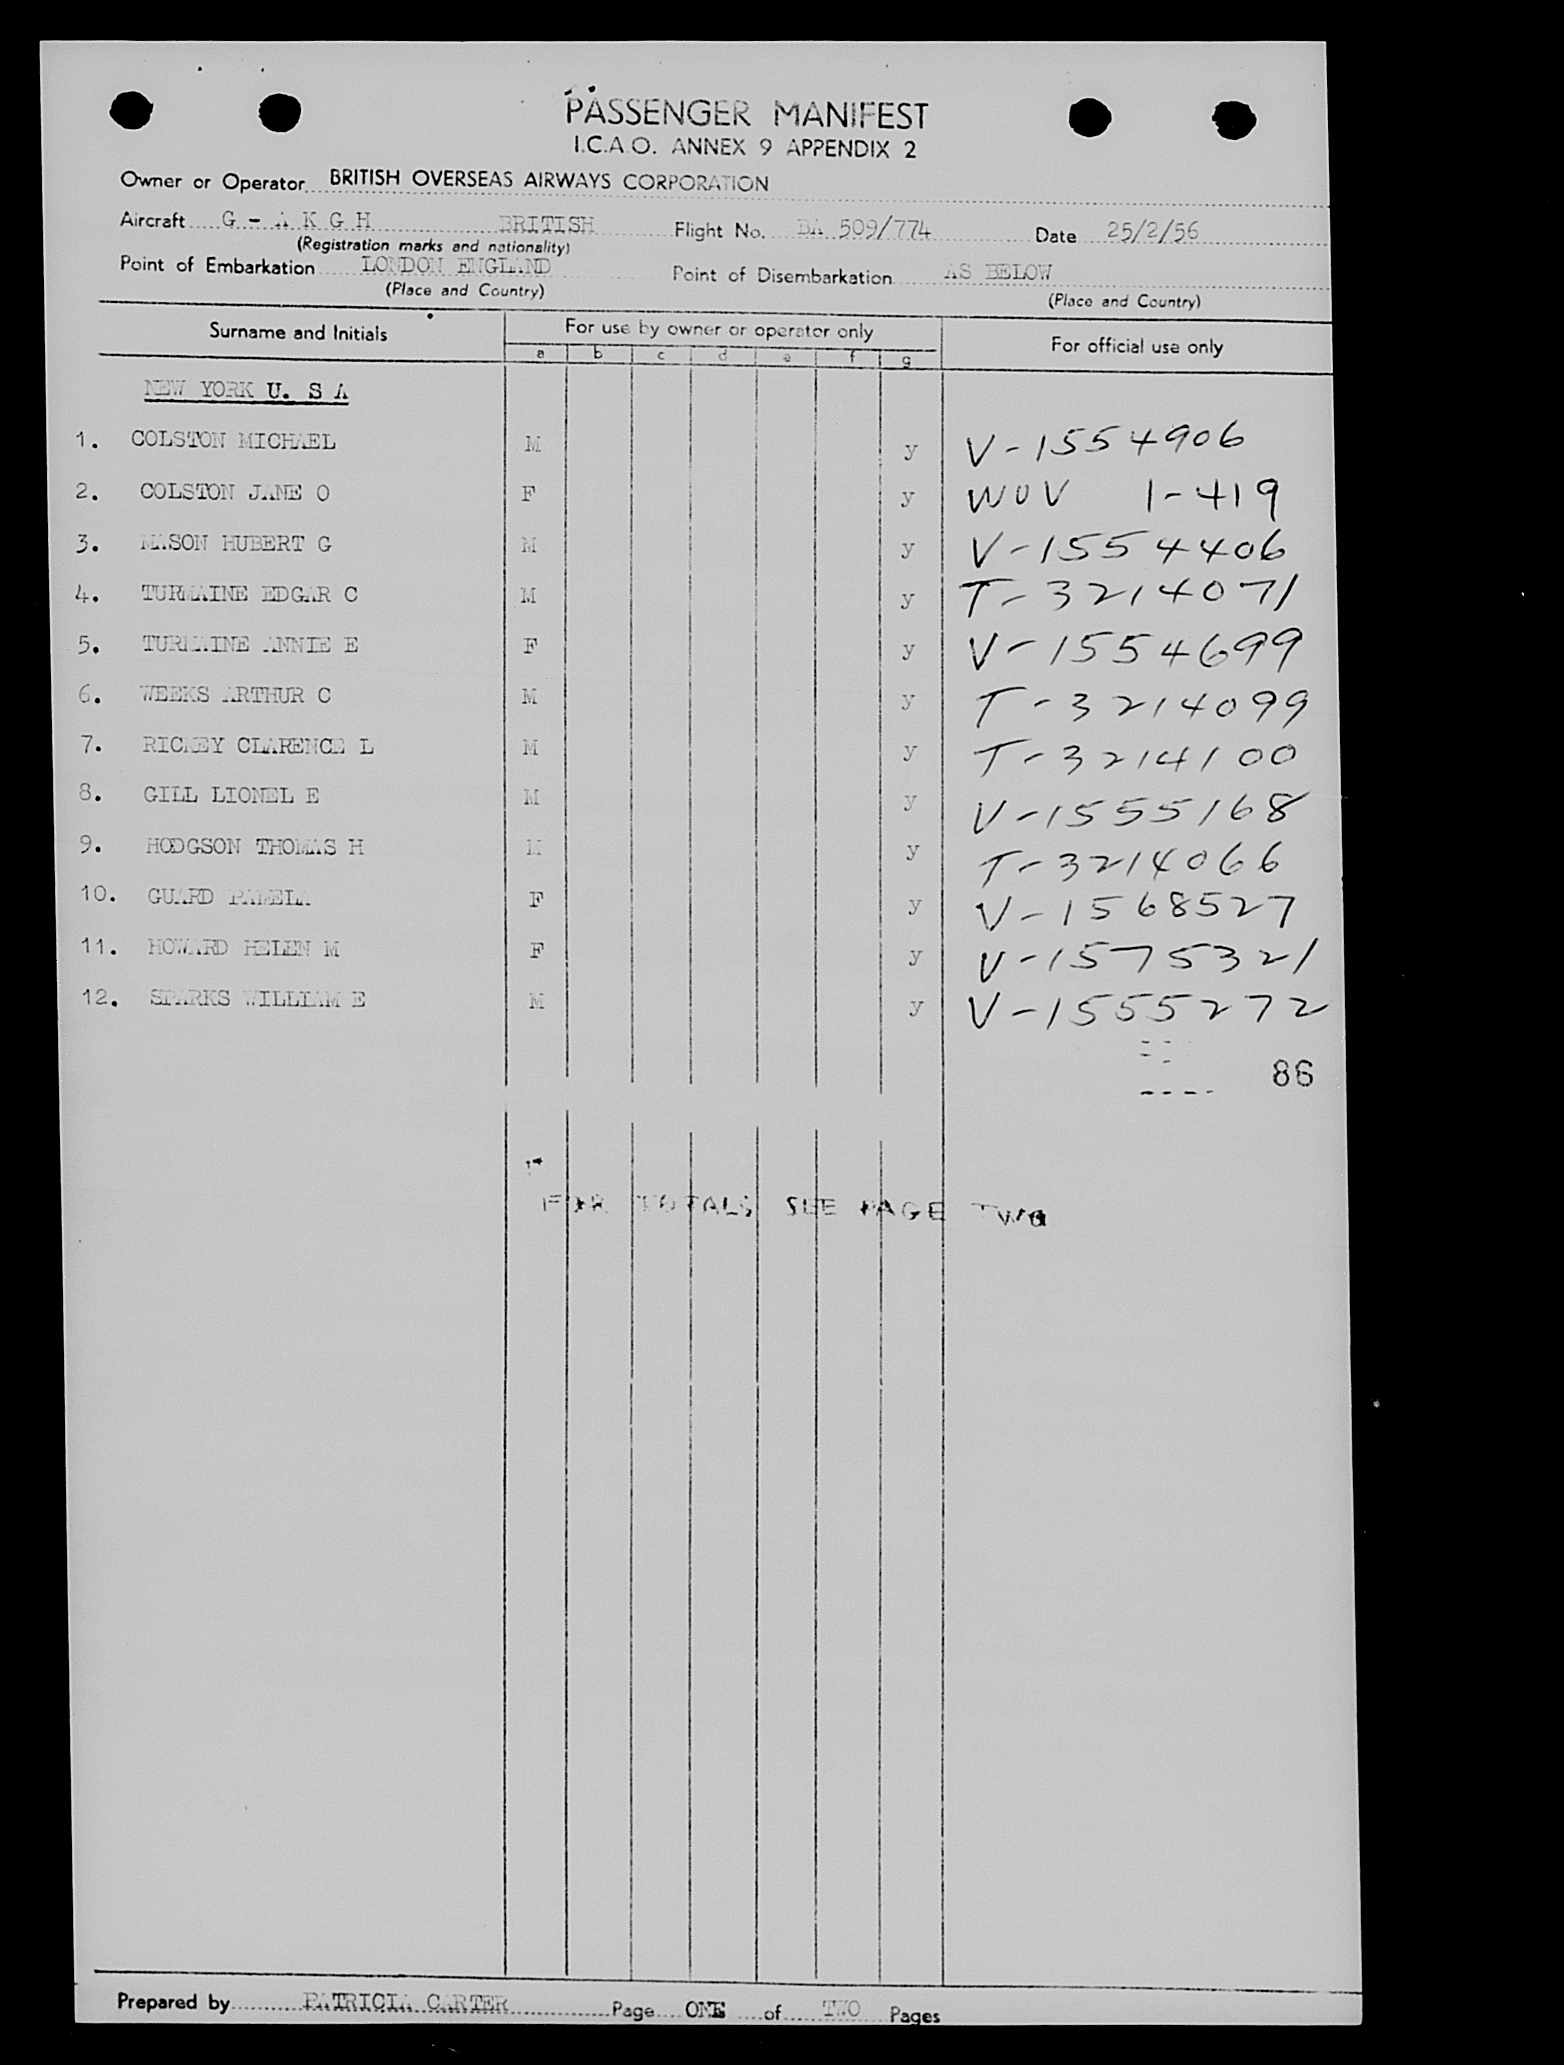 PASSENGER MANIFEST
I.C.A.O. ANNEX 9 APPENDIX 2
Owner or Operator BRITISH OVERSEAS AIRWAYS CORPORATION
Aircraft G - A K G H BRITISH Flight No. BA 509/774 Date 25/2/56
(Registration marks and nationality)
Point of Embarkation LONDON ENGLAND Point of Disembarkation AS BELOW
(Place and Country) (Place and Country)
Surname and Initials For use by owner or operator only For official use only
a b c d e f g
NEW YORK U. S A
1. COLSTON MICHAEL M y V-1554906
2. COLSTON JANE O F y WUV 1-419
3. MASON HUBERT G M y V-1554406
4. TURMAINE EDGAR C M y T-3214071
5. TURMAINE ANNIE E F y V-1554699
6. WEEKS ARTHUR C M y T-3214099
7. CLARENCE L M y T-3214100
8. GILL LIONEL E M y V-1555168
9. HODGSON THOMAS H M y T-3214066
10. GUARD PAMELA F y V-1568527
11. HOWARD HELEN M F y V-1575321
12. SPARKS WILLIAM E M y V-1555272
86
FOR TOTALS SEE PAGE TWO
Prepared by PATRICIA CARTER Page ONE of TWO Pages